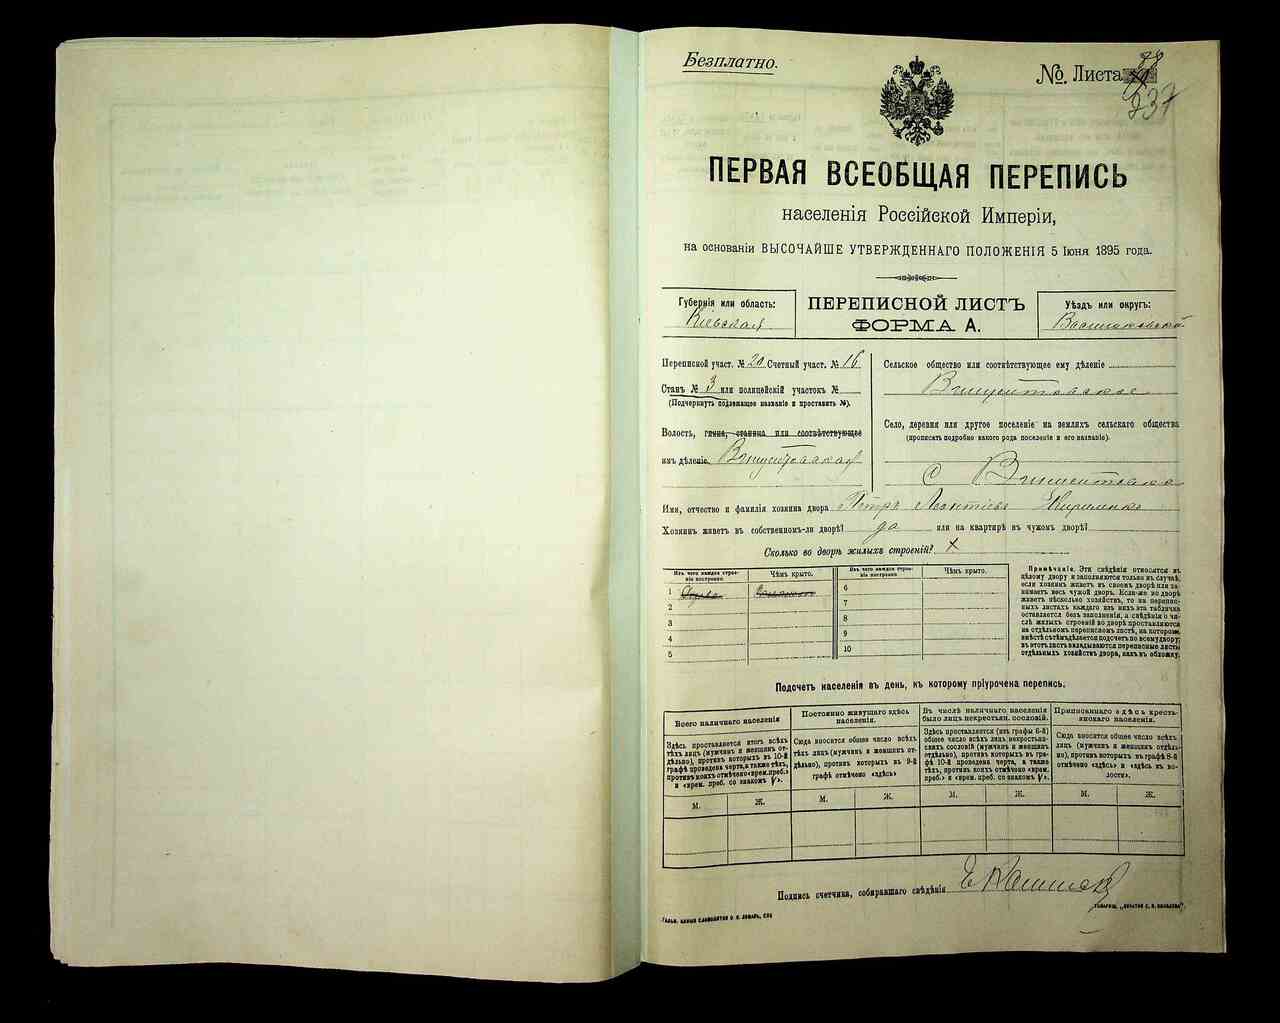 Безплатно.
№. Листа
237
ПЕРВАЯ ВСЕОБЩАЯ ПЕРЕПИСЬ
населенія Россійской Имперіи,
на основаніи ВЫСОЧАЙШЕ УТВЕРЖДЕННАГО ПОЛОЖЕНІЯ 5 Іюня 1895 года.
Губернія или область:
Кіевская
ПЕРЕПИСНОЙ ЛИСТЪ
ФОРМА А.
Уѣздъ или округъ:
Васильковскій
Переписной участ. № 20 Счетный участ. № 16
Станъ № 3 или полицейскій участокъ №
(Подчеркнуть подлежащее названіе и проставить №).
Волость, гмина, станица или соотвѣтствующее
имъ дѣленіе.
Сельское общество или соотвѣтствующее ему дѣленіе
Село, деревня или другое поселеніе на земляхъ сельскаго общества
(прописать подробно какого рода поселеніе и его названіе).
с
Имя, отчество и фамилія хозяина двора Петръ Леонтіевъ
Хозяинъ живетъ въ собственномъ-ли дворѣ? да или на квартирѣ въ чужомъ дворѣ?
Сколько во дворѣ жилыхъ строеній? х
Изъ чего каждое строеніе построено. Чѣмъ крыто.
1
2
3
4
5
Изъ чего каждое строеніе построено. Чѣмъ крыто.
6
7
8
9
10
Примѣчаніе. Эти свѣдѣнія относятся къ
цѣлому двору и заполняются только въ случаѣ,
если хозяинъ живетъ въ своемъ дворѣ или занимаетъ
весь чужой дворъ. Если-же во дворѣ
живетъ нѣсколько хозяйствъ, то на переписныхъ
листахъ каждаго изъ нихъ эта табличка
оставляется безъ заполненія, а свѣдѣнія о числѣ
жилыхъ строеній во дворѣ проставляются
на отдѣльномъ переписномъ листѣ, на которомъ
вмѣстѣ съ тѣмъ дѣлается подсчетъ по всему двору;
въ этотъ листъ вкладываются переписные листы
отдѣльныхъ хозяйствъ двора, какъ въ обложку.
Подсчетъ населенія въ день, къ которому пріурочена перепись.
Всего наличнаго населенія
Здѣсь проставляется итогъ всѣхъ
тѣхъ лицъ (мужчинъ и женщинъ отдѣльно),
противъ которыхъ въ 10-й
графѣ проведена черта, а также тѣхъ,
противъ коихъ отмѣчено «врем. преб.»
и «врем. преб. со знакомъ V».
Постоянно живущаго здѣсь
населенія.
Сюда вносится общее число всѣхъ
тѣхъ лицъ (мужчинъ и женщинъ отдѣльно),
противъ которыхъ въ 9-й
графѣ отмѣчено «здѣсь»
Въ числѣ наличнаго населенія
было лицъ некрестьян. сословій.
Здѣсь проставляется (изъ графы 6-й)
общее число всѣхъ лицъ некрестьянскихъ
сословій (мужчинъ и женщинъ
отдѣльно), противъ коихъ въ графѣ
10-й проведена черта, а также
тѣхъ, противъ коихъ отмѣчено «врем.
преб.» и «врем. преб. со знакомъ V».
Приписаннаго здѣсь крестьянскаго
населенія.
Сюда вносится общее число всѣхъ
лицъ (мужчинъ и женщинъ отдѣльно),
противъ коихъ въ графѣ 8-й
отмѣчено «здѣсь» и «здѣсь въ волости».
М. Ж. М. Ж. М. Ж. М. Ж.
Подпись счетчика, собиравшаго свѣдѣнія